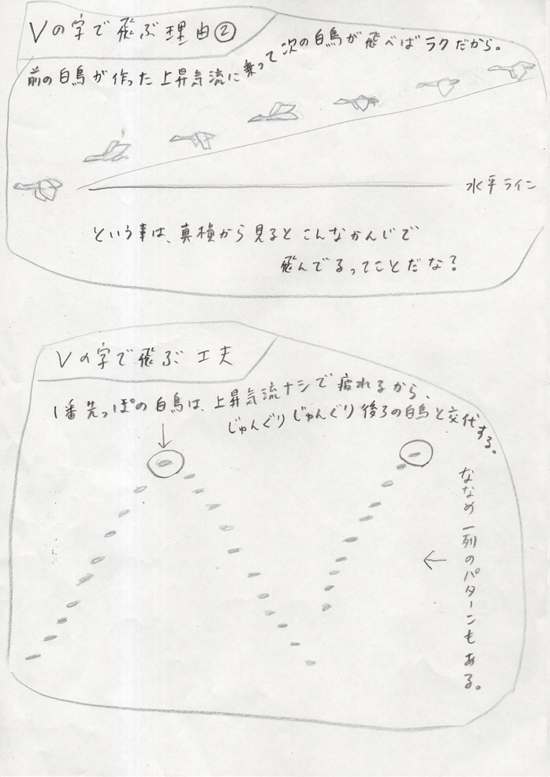 Vの字で飛ぶ理由②
前の白鳥が作った上昇気流に乗って次の白鳥が飛べばラクだから。
水平ライン
という事は、真横から見るとこんなかんじで
飛んでるってことだな？
Vの字で飛ぶ工夫
1番先っぽの白鳥は、上昇気流ナシで疲れるから、
じゅんぐりじゅんぐり後ろの白鳥と交代する。
ななめ一列のパターンもある。